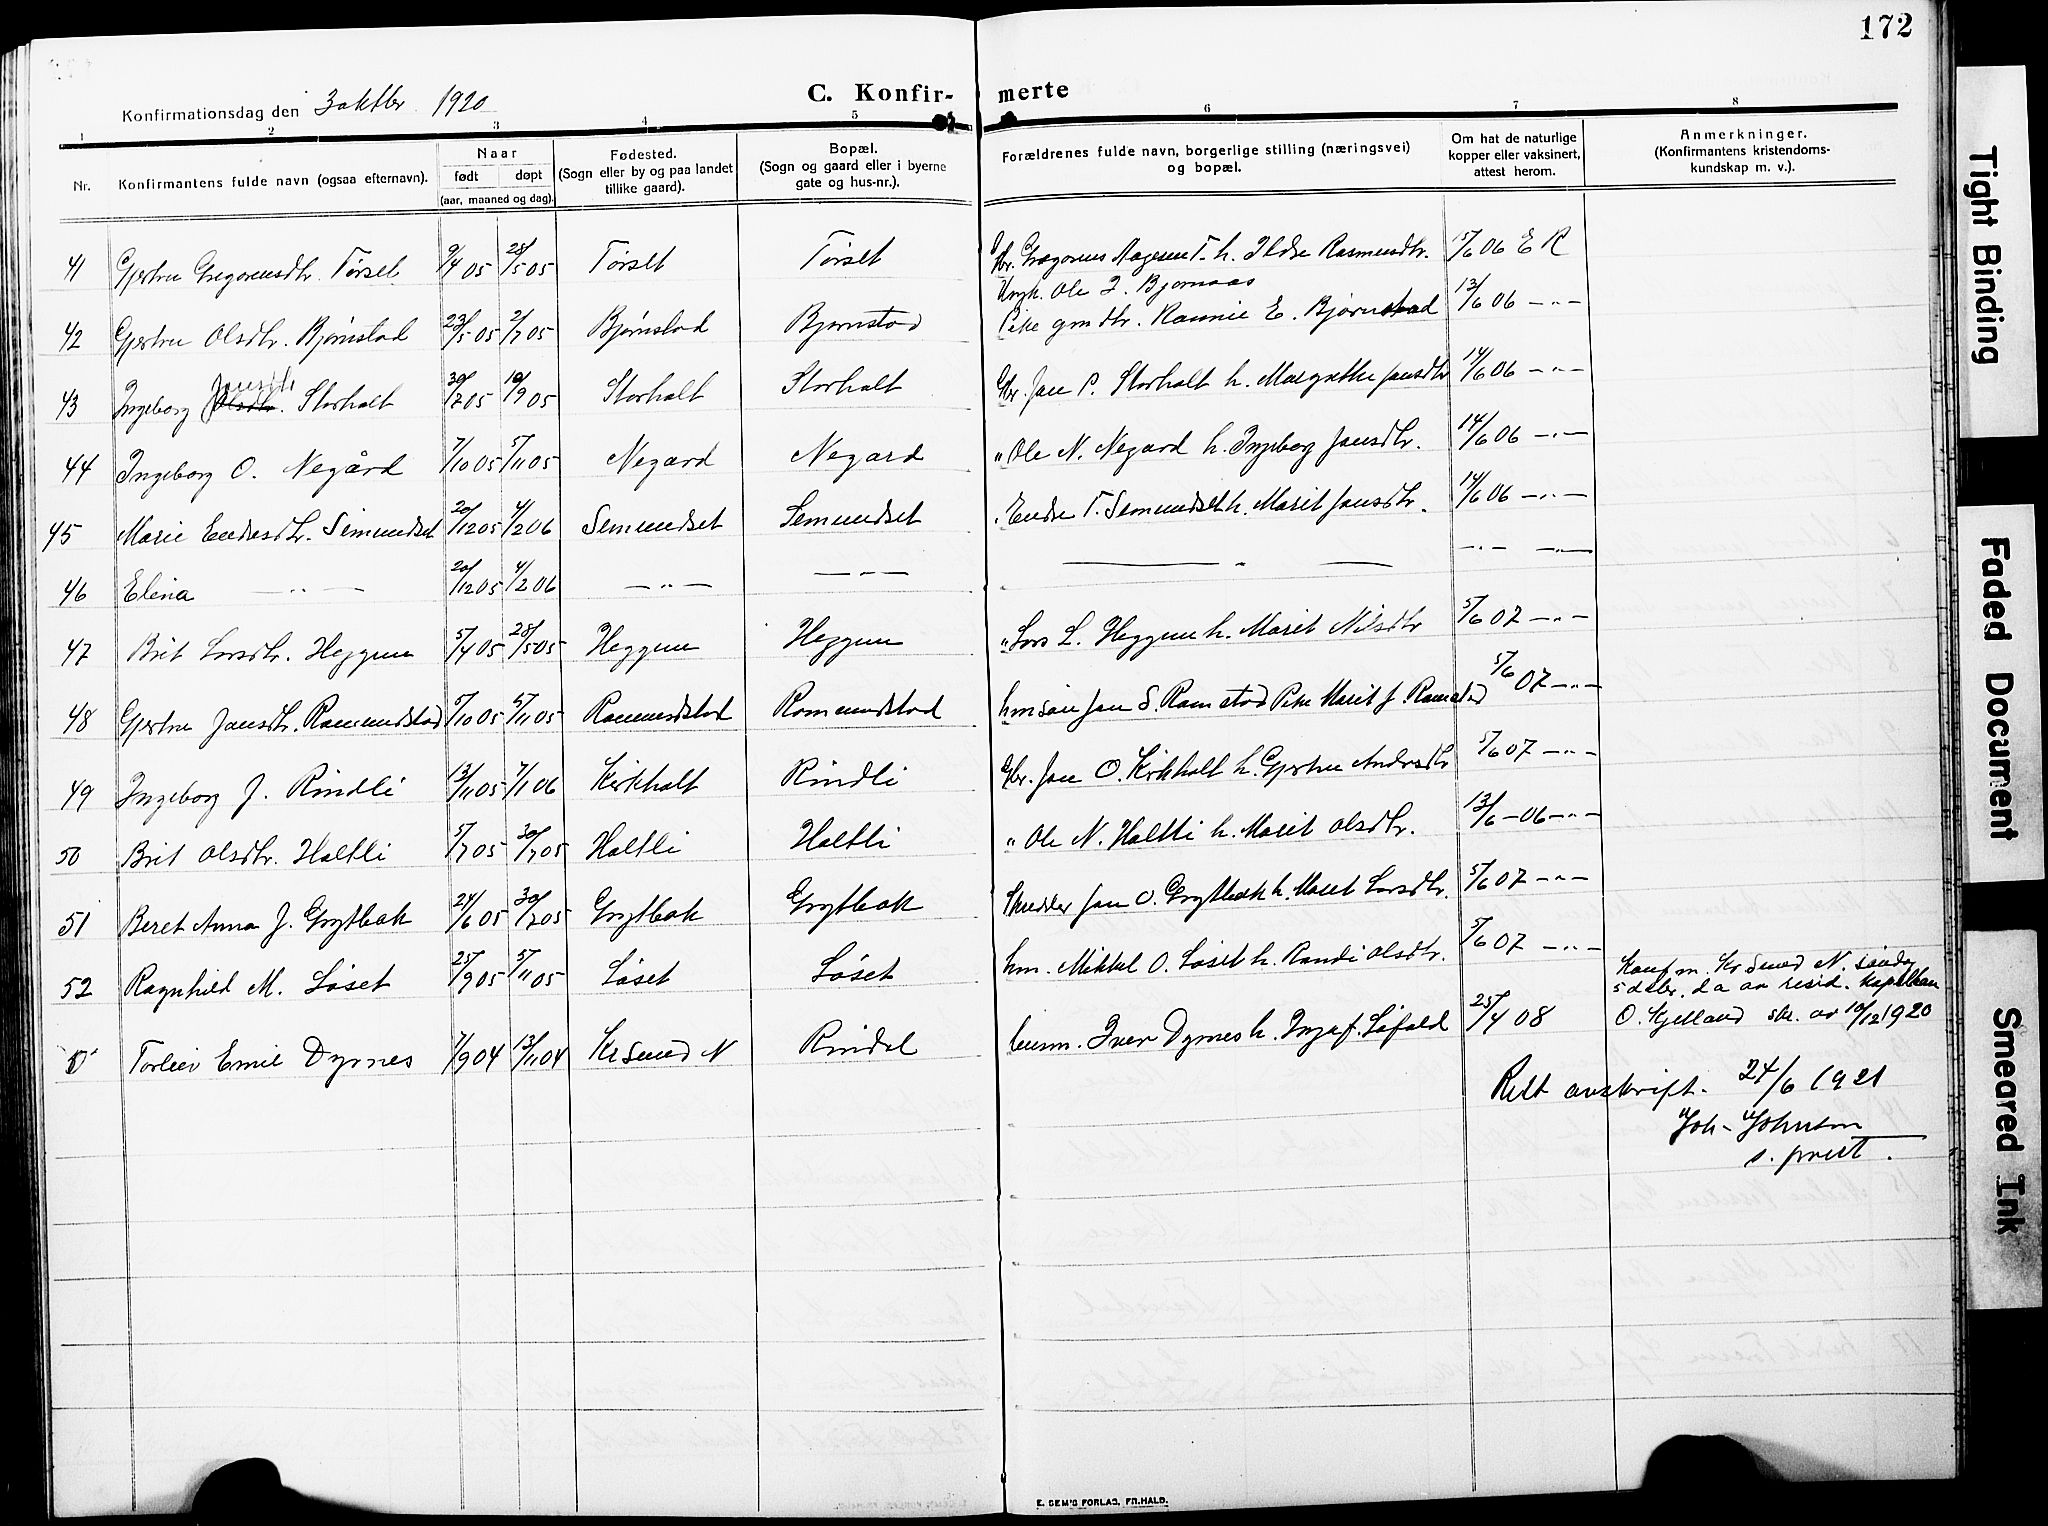 172
Konfirmationsdag den 3 oktbr 1920
C. Konfir- merte
1 2 3 4 5 6 7 8
Nr. Konfirmantens fulde navn (ogsaa efternavn). Naar født døpt (aar, maaned og dag). Fødested. (Sogn eller by og paa landet tillike gaard). Bopæl. (Sogn og gaard eller i byerne gate og hus-nr.). Forældrenes fulde navn, borgerlige stilling (næringsvei) og bopæl. Om hat de naturlige kopper eller vaksinert, attest herom. Anmerkninger. (Konfirmantens kristendoms-kundskap m. v.).
41 Gjertru Gregoriusdtr. Tørset 9/4 05 28/5 05 Tørset Tørset Gbr. Gregorius T. h. Ildse Rasmusdtr. 15/6 06 E R
Ungk. Ole J. Bjørnaas
42 Gjertru Olsdtr. Bjørnstad 23/5 05 2/7 05 Bjørnstad Bjørnstad Pike gmdtr. Rannie E. Bjørnstad 13/6 06 -"-
43 Ingeborg Jansdtr. Storholt 30/7 05 10/9 05 Storholt Storholt Gbr. Jan P. Storholt h. Margrethe Jansdtr 14/6 06 -"-
44 Ingeborg O. Negård 7/10 05 5/11 05 Negard Negard " Ole N. Negard h. Ingeborg Jansdtr. 14/6 06 -"-
45 Marie Endresdtr. Semundset 20/12 05 4/2 06 Semundset Semundset " Endre T. Semundset h. Marit Jansdtr. 14/6 06 -"-
46 Elina -"- 20/12 05 4/2 06 -"- -"- -"- -"-
47 Brit Larsdtr. Heggem 5/4 05 28/5 05 Heggem Heggem " Lars L. Heggem h. Marit Nilsdtr 5/6 07 -"-
48 Gjertru Jansdtr. Romundstad 5/10 05 5/11 05 Romundstad Romundstad hmsøn Jan S. Ramstad Pike Marit J. Ramstad 5/6 07 -"-
49 Ingeborg J. Rindli 13/11 05 7/1 06 Kirkholt Rindli Gbr. Jan O. Kirkholt h. Gjertru Andersdtr 5/6 07 -"-
50 Brit Olsdtr. Holtli 5/7 05 30/7 05 Holtli Holtli " Ole N. Holtli h. Marit Olsdtr. 13/6 - 06 -"-
51 Beret Anna J. Grytbak 24/6 05 30/7 05 Grytbak Grytbak Skredder Jan O. Grytbak h. Marit Larsdtr. 5/6 07 -"-
52 Ragnhild M. Løset 25/9 05 5/11 05 Løset Løset hm. Mikkel O. Løset h. Randi Olsdtr. 5/6 07 -"-
Konf m. Kr sund N. søndag
5 dsbr. da av resid. kapellan
Torleiv Emil Dyrnes 7/9 04 13/11 04 Kr sund N Rindal Iver Dyrnes h. Inga J. Løfald 25/4 08 O. Kjelland skr. av 10/12 1920
Rett avskrift. 24/6 1921
Joh- Johnson
s. prest.
E. SEM'S FORLAG, FR.HALD.
Tight Binding
Faded Document
Smeared Ink